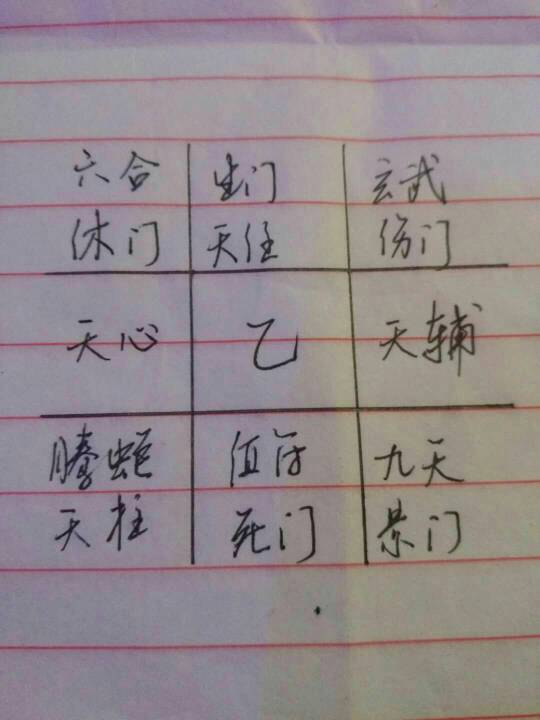 六合 生门 玄武
休门 天任 伤门
天心 乙 天辅
螣蛇 值符 九天
天柱 死门 景门